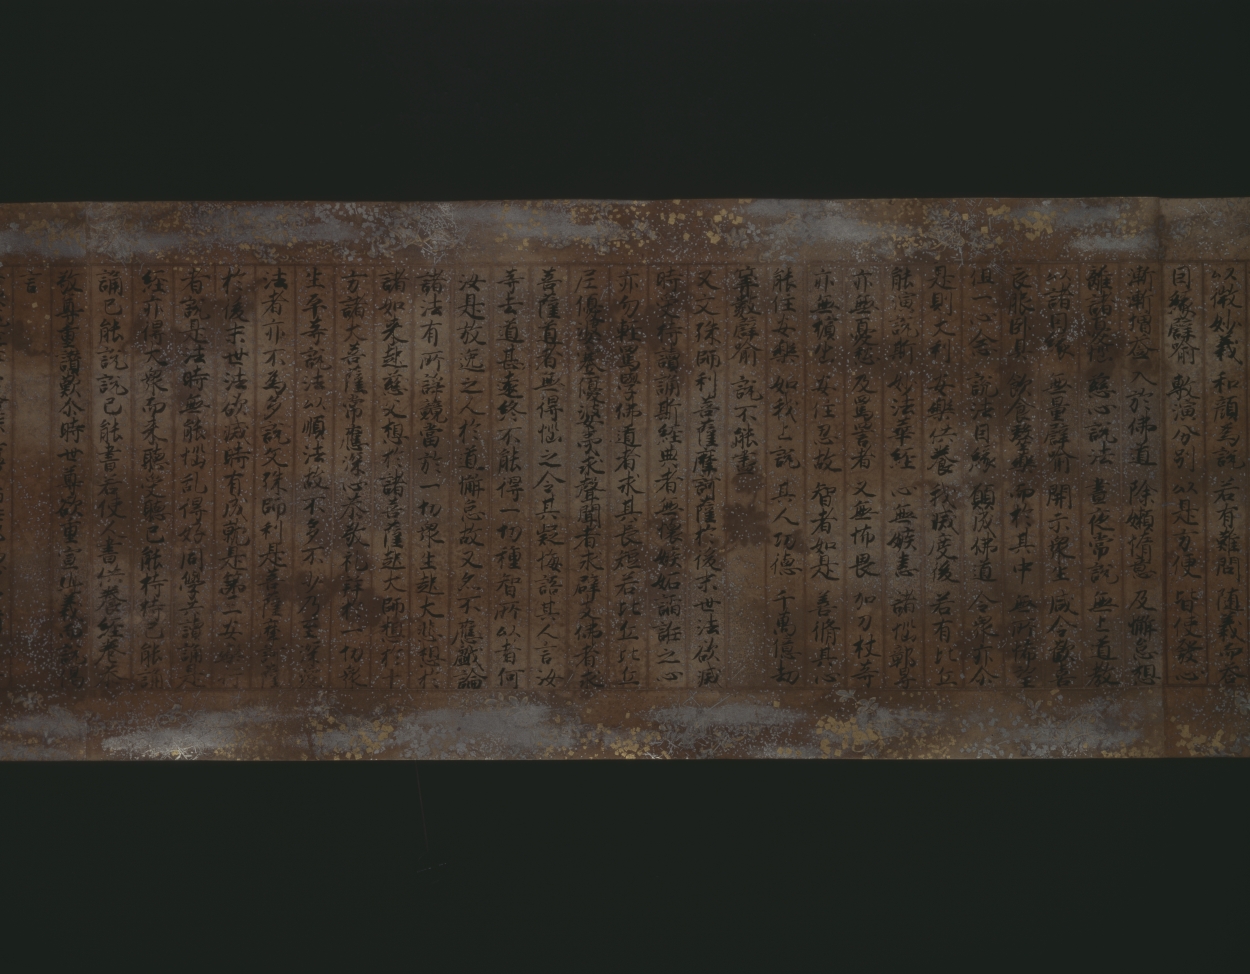 以微妙義 和顔為説 若有難問 隨義而答
因縁譬喻 敷演分別 以是方便 皆使發心
漸漸增益 入於佛道 除嬾惰意 及懈怠想
離諸憂惱 慈心説法 晝夜常説 無上道教
以諸因縁 無量譬喻 開示衆生 咸令歡喜
衣服卧具 飲食醫藥 而於其中 無所悕望
但一心念 説法因縁 願成佛道 令衆亦尒
是則大利 安樂供養 我滅度後 若有比丘
能演説斯 妙法華經 心無嫉恚 諸惱鄣㝵
亦無憂愁 及罵詈者 又無怖畏 加刀杖等
亦無擯出 安住忍故 智者如是 善脩其心
能住安樂 如我上説 其人功德 千萬億劫
筭數譬喻 説不能盡
又文殊師利菩薩摩訶薩於後末世法欲滅
時受持讀誦斯經典者無懷嫉妬諂誑之心
亦勿輕罵學佛道者求其長短若比丘比丘
尼優婆塞優婆夷求聲聞者求辟支佛者求
菩薩道者無得惱之令其疑悔語其人言汝
等去道甚遠終不能得一切種智所以者何
汝是放逸之人於道懈怠故又亦不應戲論
諸法有所諍競當於一切衆生起大悲想於
諸如来起慈父想於諸菩薩起大師想於十
方諸大菩薩常應深心恭敬礼拜於一切衆
生平等説法以順法故不多不少乃至深愛
法者亦不為多説文殊師利是菩薩摩訶薩
於後末世法欲滅時有成就是第三安樂行
者説是法時無能惱乱得好同學共讀誦是
經亦得大衆而来聽受聽已能持持已能誦
誦已能説説已能書若使人書供養經卷恭
敬尊重讃歎尒時世尊欲重宣此義而説偈
言